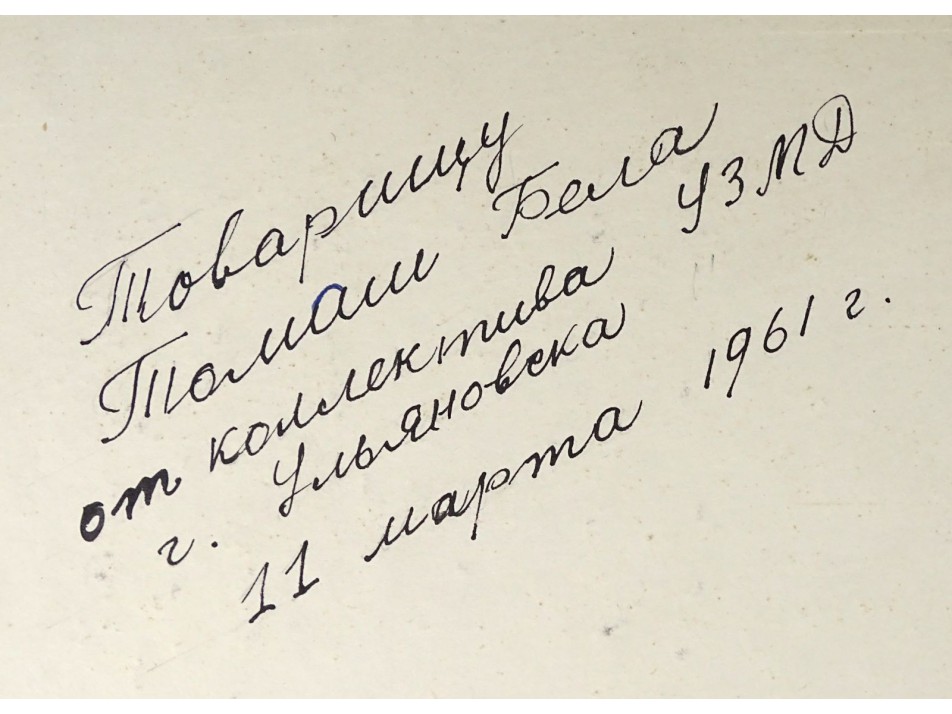 Товарищу
Томаш Бела
от коллектива УЗМД
г. Ульяновска
11 марта 1961 г.